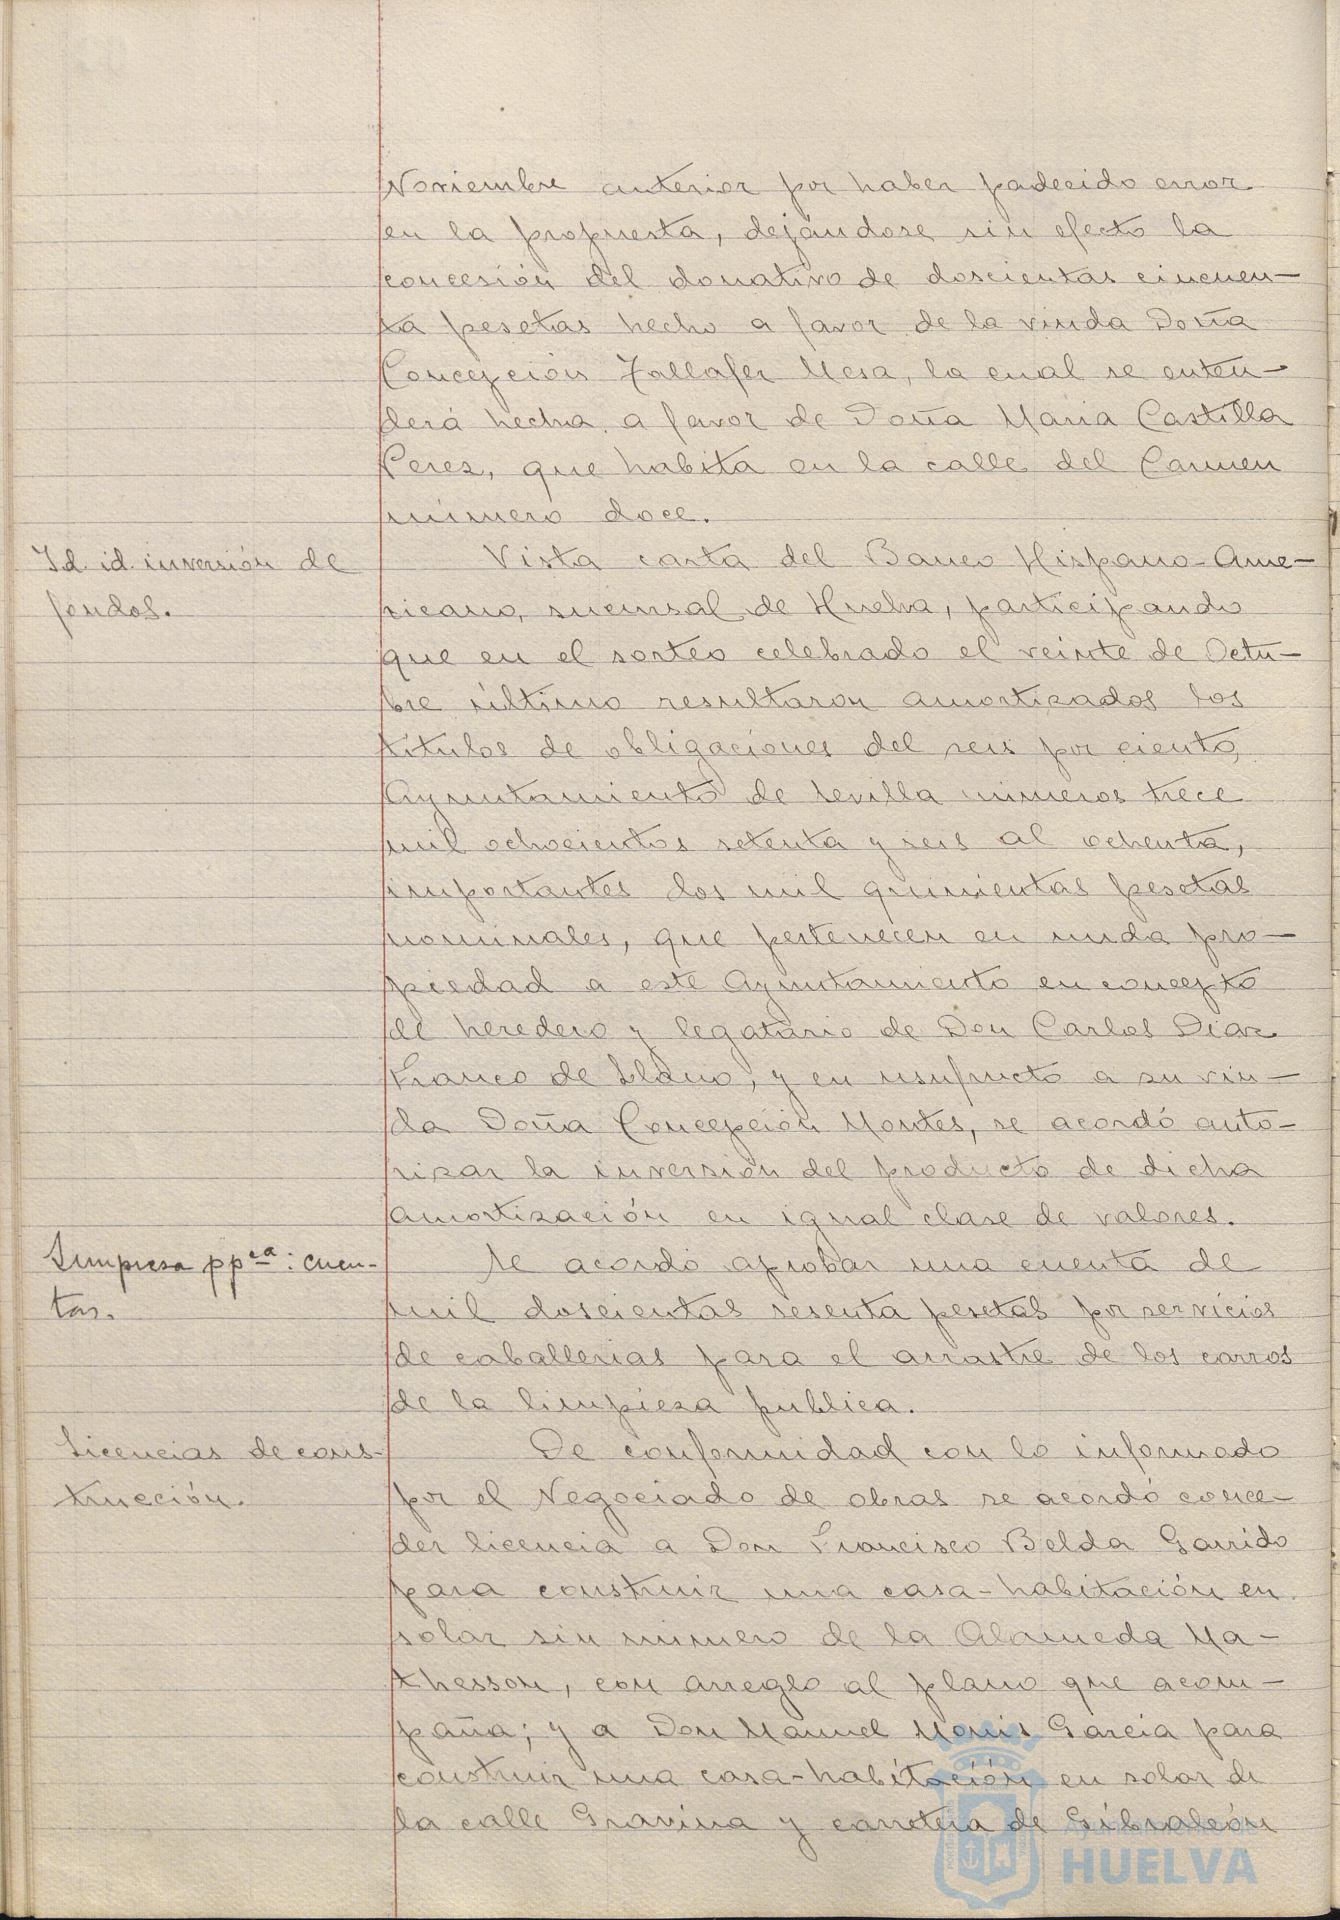 Noviembre anterior por haber padecido error
en la propuesta, dejándose sin efecto la
concesión del donativo de doscientas cincuen-
ta pesetas hecho a favor de la viuda Doña
Concepción Tallafer Mesa, la cual se enten-
derá hecha a favor de Doña Maria Castilla
Perez, que habita en la calle del Carmen
número doce.
Id. id. inversión de
fondos.
Vista carta del Banco Hispano-Ame-
ricano, sucursal de Huelva, participando
que en el sorteo celebrado el veinte de Octu-
bre último resultaron amortizados los
títulos de obligaciones del seis por ciento,
Ayuntamiento de Sevilla números trece
mil ochocientos setenta y seis al ochenta,
importantes dos mil quinientas pesetas
nominales, que pertenecen en nuda pro-
piedad a este Ayuntamiento en concepto
de heredero y legatario de Don Carlos Diaz
Franco de Llano, y en usufructo a su viu-
da Doña Concepción Montes, se acordó auto-
rizar la inversión del producto de dicha
amortización en igual clase de valores.
Limpieza ppca: cuen-
tas.
Se acordó aprobar una cuenta de
mil doscientas sesenta pesetas por servicios
de caballerias para el arrastre de los carros
de la limpieza publica.
Licencias de cons-
trucción.
De conformidad con lo informado
por el Negociado de obras se acordó conce-
der licencia a Don Francisco Belda Garrido
para construir una casa-habitación en
solar sin número de la Alameda Ma-
thesson, con arreglo al plano que acom-
paña; y a Don Manuel Monis Garcia para
construir una casa-habitación en solar de
la calle Gravina y carretera de Gibraleón
Ayuntamiento de
HUELVA